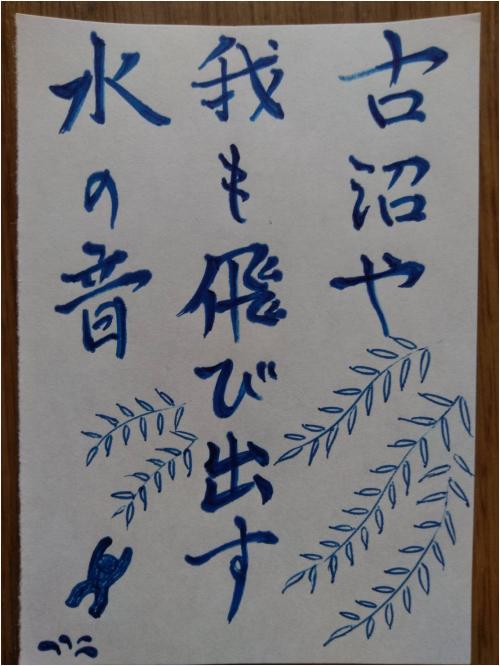 古沼や
我も飛び出す
水の音